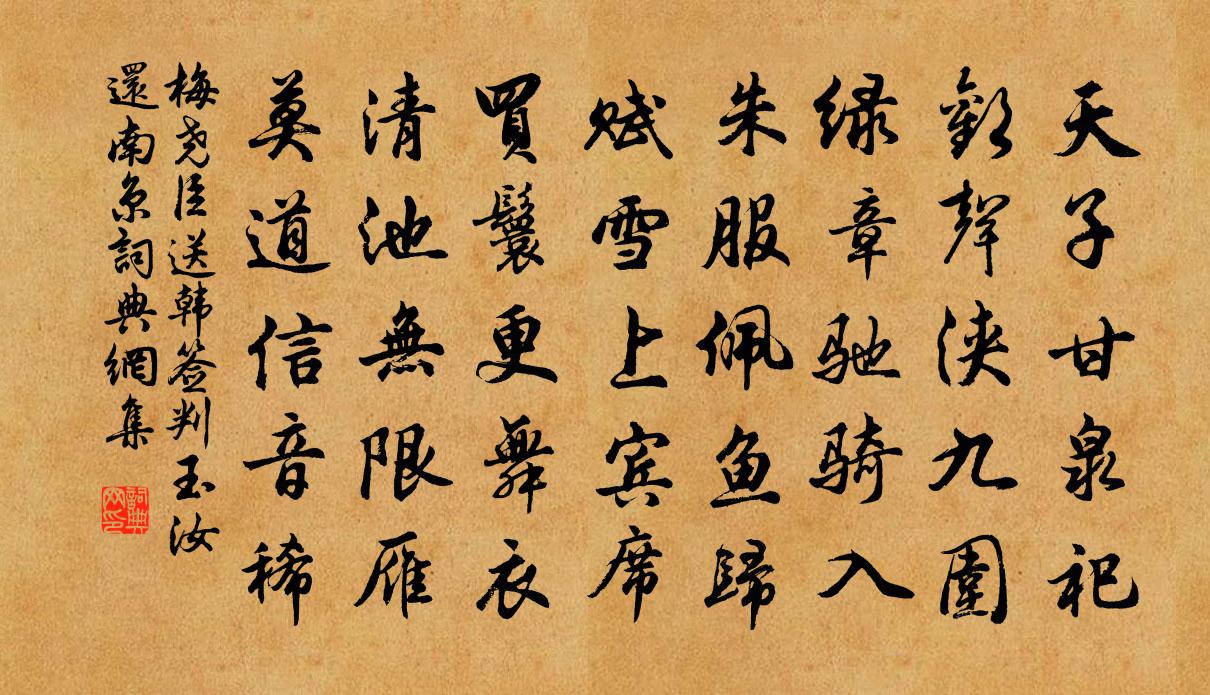 天子甘泉祀
歡聲浹九圍
緑章馳騎入
朱服佩魚歸
赋雪上宾席
買鬟更舞衣
清池無限雁
莫道信音稀
梅尧臣送韩签判玉汝
還南京詞典網集
詞典网印